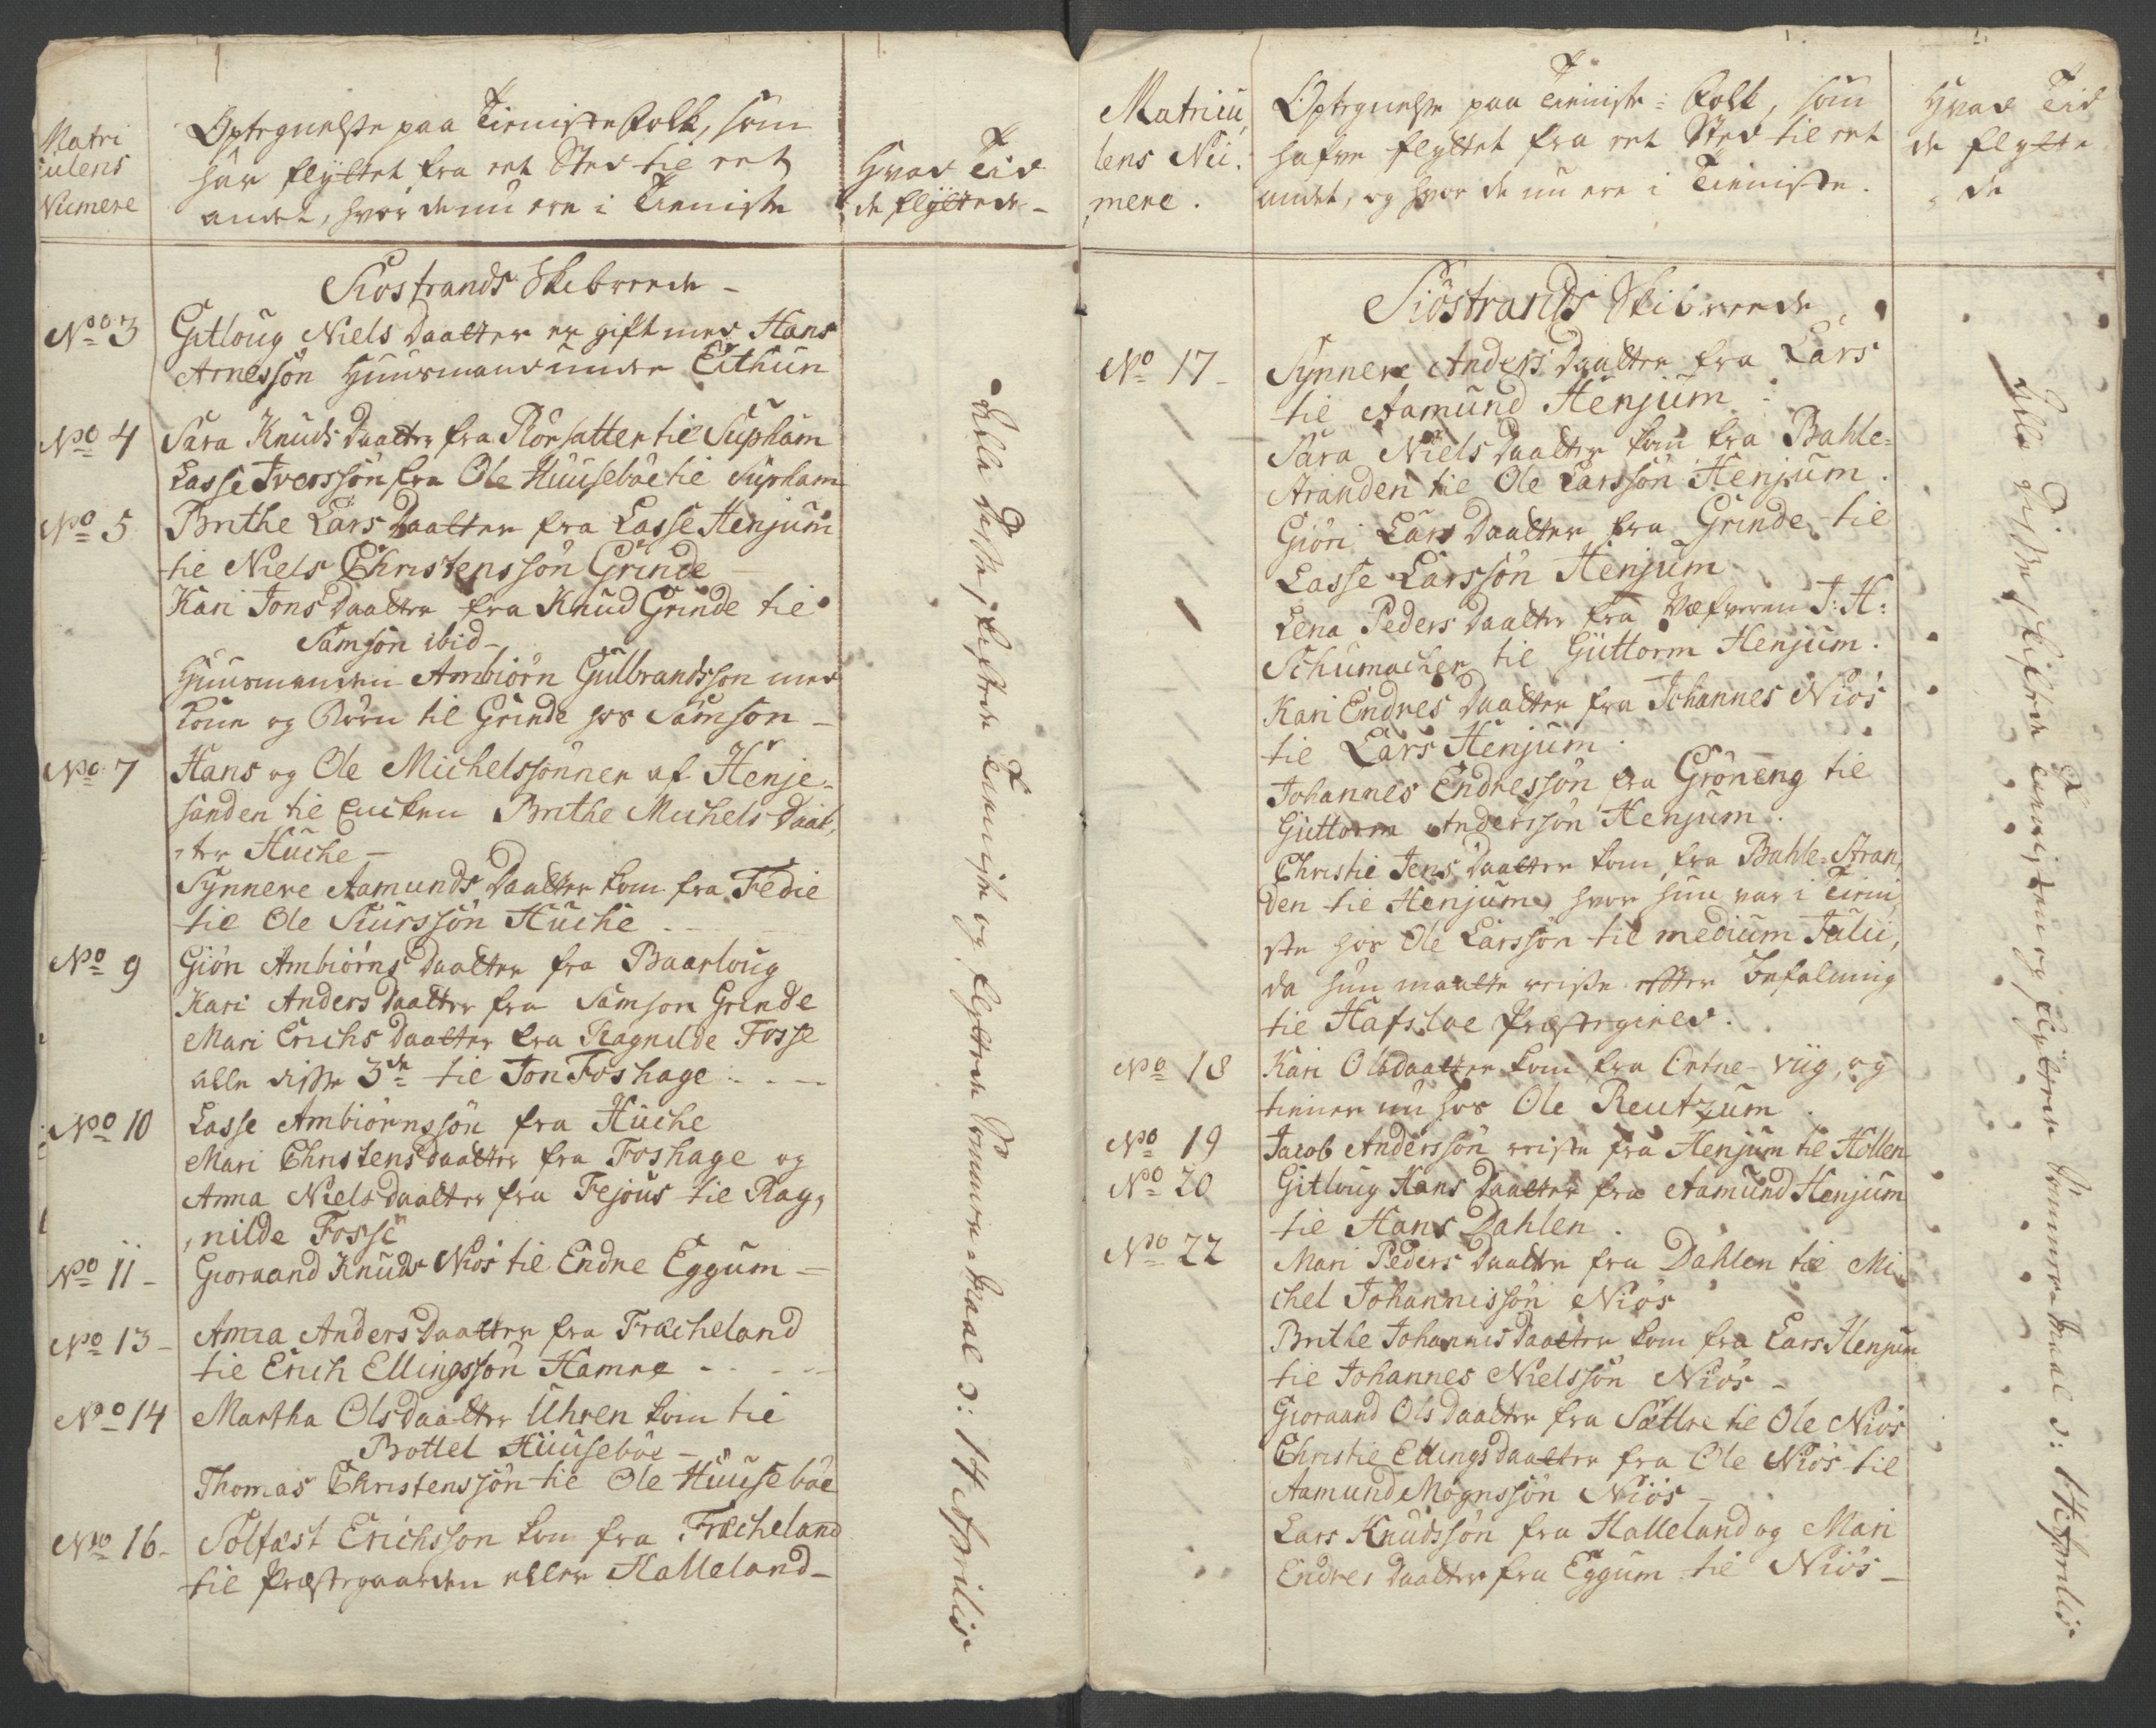 Matri
culens
Numere
Optegnelse paa TienisteFolk, som
har flyttet fra eet Sted til eet
andet, hvor de nu ere i Tieniste
Hvad Tid
de flyttede -
Siöstrands Skibreede -
No 3 Gitloug Niels Daatter er gift med Hans
Arnessön Huusmand under Eithun
No 4 Sara Knuds Daatter fra Rörsatter til Supham
Lasse Iverssön fra Ole Huuseböe til Supham
No 5 Brithe Lars Daatter fra Lasse Henjum
til Niels Christenssön Grinde -
Kari Jons Daatter fra Knud Grinde til
Samson ibid -
Huusmanden Ambiörn Gulbrandsson med
Kone og Börn til Grinde hos Samson -
No 7 Hans og Ole Michelssönner af Henje-
sanden til Enken Brithe Michels Daat,
,ter Huche -
Synneve Aamunds Daatter kom fra Fedie
til Ole Siurssön Huche -
No 9 Giöri Ambiörns Daatter fra Baarloug
Kari Anders Daatter fra Samson Grinde
Mari Erichs Daatter fra Ragnilde Fosse
alle disse 3de til Jon Foshage - - -
No 10 Lasse Ambiörnssön fra Huche
Mari Christens Daatter fra Foshage og
Anna Niels Daatter fra Fejous til Rag,
,nilde Fosse
No 11 - Gioraand Knuds Niös til Endre Eggum -
No 13 - Anna Anders Daatter fra Fræcheland
til Erich Ellingssön Hamre - - -
No 14 Martha Ols Daatter Uhren kom til
Bottel Huuseböe -
Thomas Christenssön til Ole Huuseböe
No 16 - Solfast Erichsson kom fra Fræcheland
til Præstegaarden eller Halleland -
Alle disse skiftede Tieniste og flyttede Sommer-Maal ɔ: 14 Aprilis
Matricu,
lens Nu.
mere.
Optegnelse paa Tieniste-Folk, som
hafve flyttet fra eet Sted til eet
andet, og hvor de nu ere i Tieniste.
Hvad Tid
de flytte
, de
Siöstrands Skibreede
No 17 - Synneve Anders Daatter fra Lars
til Aamund Henjum
Sara Niels Daatter kom fra Bahle-
stranden til Ole Larssön Henjum.
Giöri Lars Daatter fra Grinde til
Lasse Larssön Henjum
Lena Peders Daatter fra Væfveren J: H:
Schumacher til Guttorm Henjum.
Kari Endres Daatter fra Johannes Niös
til Lars Henjum.
Johannes Endressön fra Gröneng til
Guttorm Anderssön Henjum.
Christie Jens Daatter kom fra Bahle-Stran,
den til Henjum, hvor hun var i Tieni
ste hos Ole Larssön til medium Julii,
da hun maatte reise efter Befaling
til Hafsloe Præstegield.
No 18 Kari Olsdaatter kom fra Ortne-viig, og
tiener nu hos Ole Reutzum.
No 19 Jacob Anderssön reiste fra Henjum til Hollen
No 20 Gitloug Hans Daatter fra Aamund Henjum
til Hans Dahlen.
No 22 Mari Peders Daatter fra Dahlen til Mi,
chel Johannissön Niös
Brithe Johannis Daatter kom fra Lars Henjum
til Johannes Nielssön Niös -
Gioraand Ols Daatter fra Sættre til Ole Niös
Christie Ellings Daatter fra Ole Niös til
Aamund Mognssön Niös -
Lars Knudssön fra Halleland og Mari
Endres Daatter fra Eggum til Niös -
Alle disse skiftede Tienisten og flyttede Sommermaal ɔ: 14 Aprilis